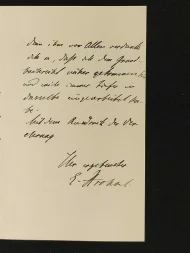 denn ihm vor Allem verdanke
ich es, daß ich dem Grund-
näher gekommen
und mich immer tiefer in
dasselbe eingearbeitet ha-
be.
Mit dem Ausdruck der Ver-
ehrung
Ihr ergebenster
E.